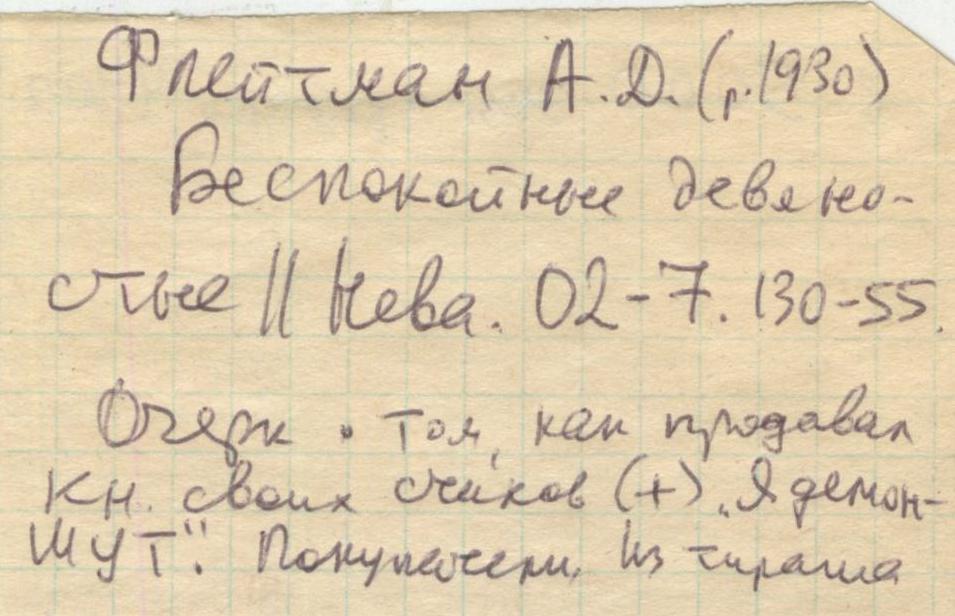 Флейтман А.Д. (р.1930)
Беспокойные девяно-
стые // Нева. 02-7. 130-55.
Очерк о том, как продавал
кн. своих стихов (+) "Я демон-
ШУТ". Покупатели. Из тиража